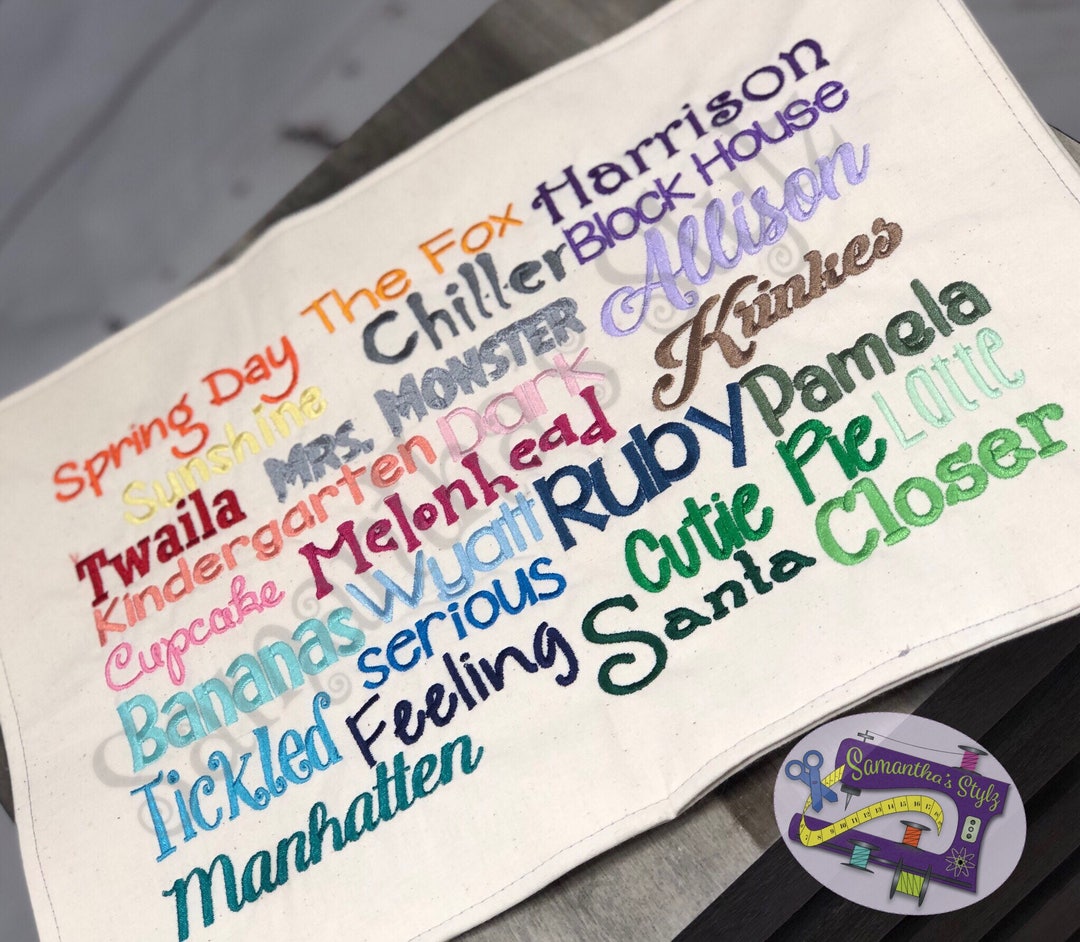 Harrison
Block House
The Fox
Chiller
Allison
Spring Day
Sunshine
Mrs. Monster
Krinkes
Twaila
Kindergarten
Dark
Pamela
Latte
Melonhead
Ruby
Cutie Pie
Closer
Cupcake
Wyatt
Bananas
serious
Santa
Tickled
Feeling
Manhatten
Samantha's Stylz